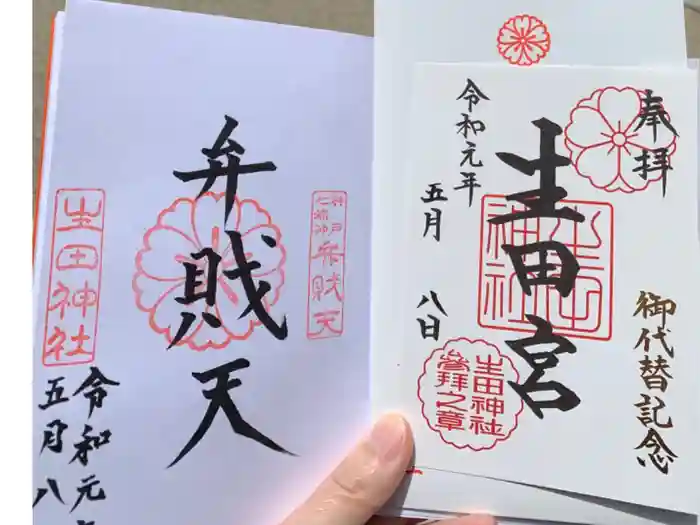 奉拝
生田宮
令和元年
五月
八日
御代替記念
生田神社
生田神社
参拝之章
神戸
七福神
弁財天
弁財天
生田神社
令和元年
五月八